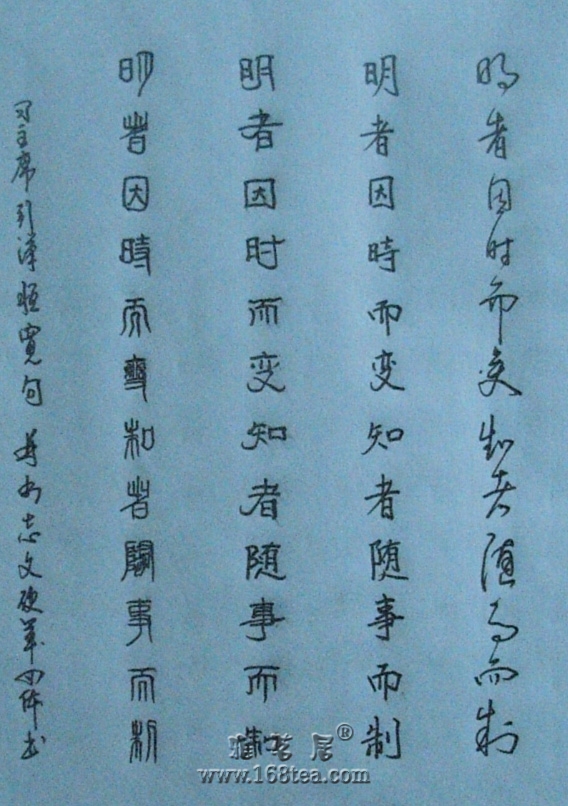 明者因时而变知者随事而制
明者因時而变知者随事而制
明者因时而变知者随事而制
明者因時而變知者隨事而制
习主席引漢桓寬句 志文硬笔四体书
雅茗居®
www.168tea.com